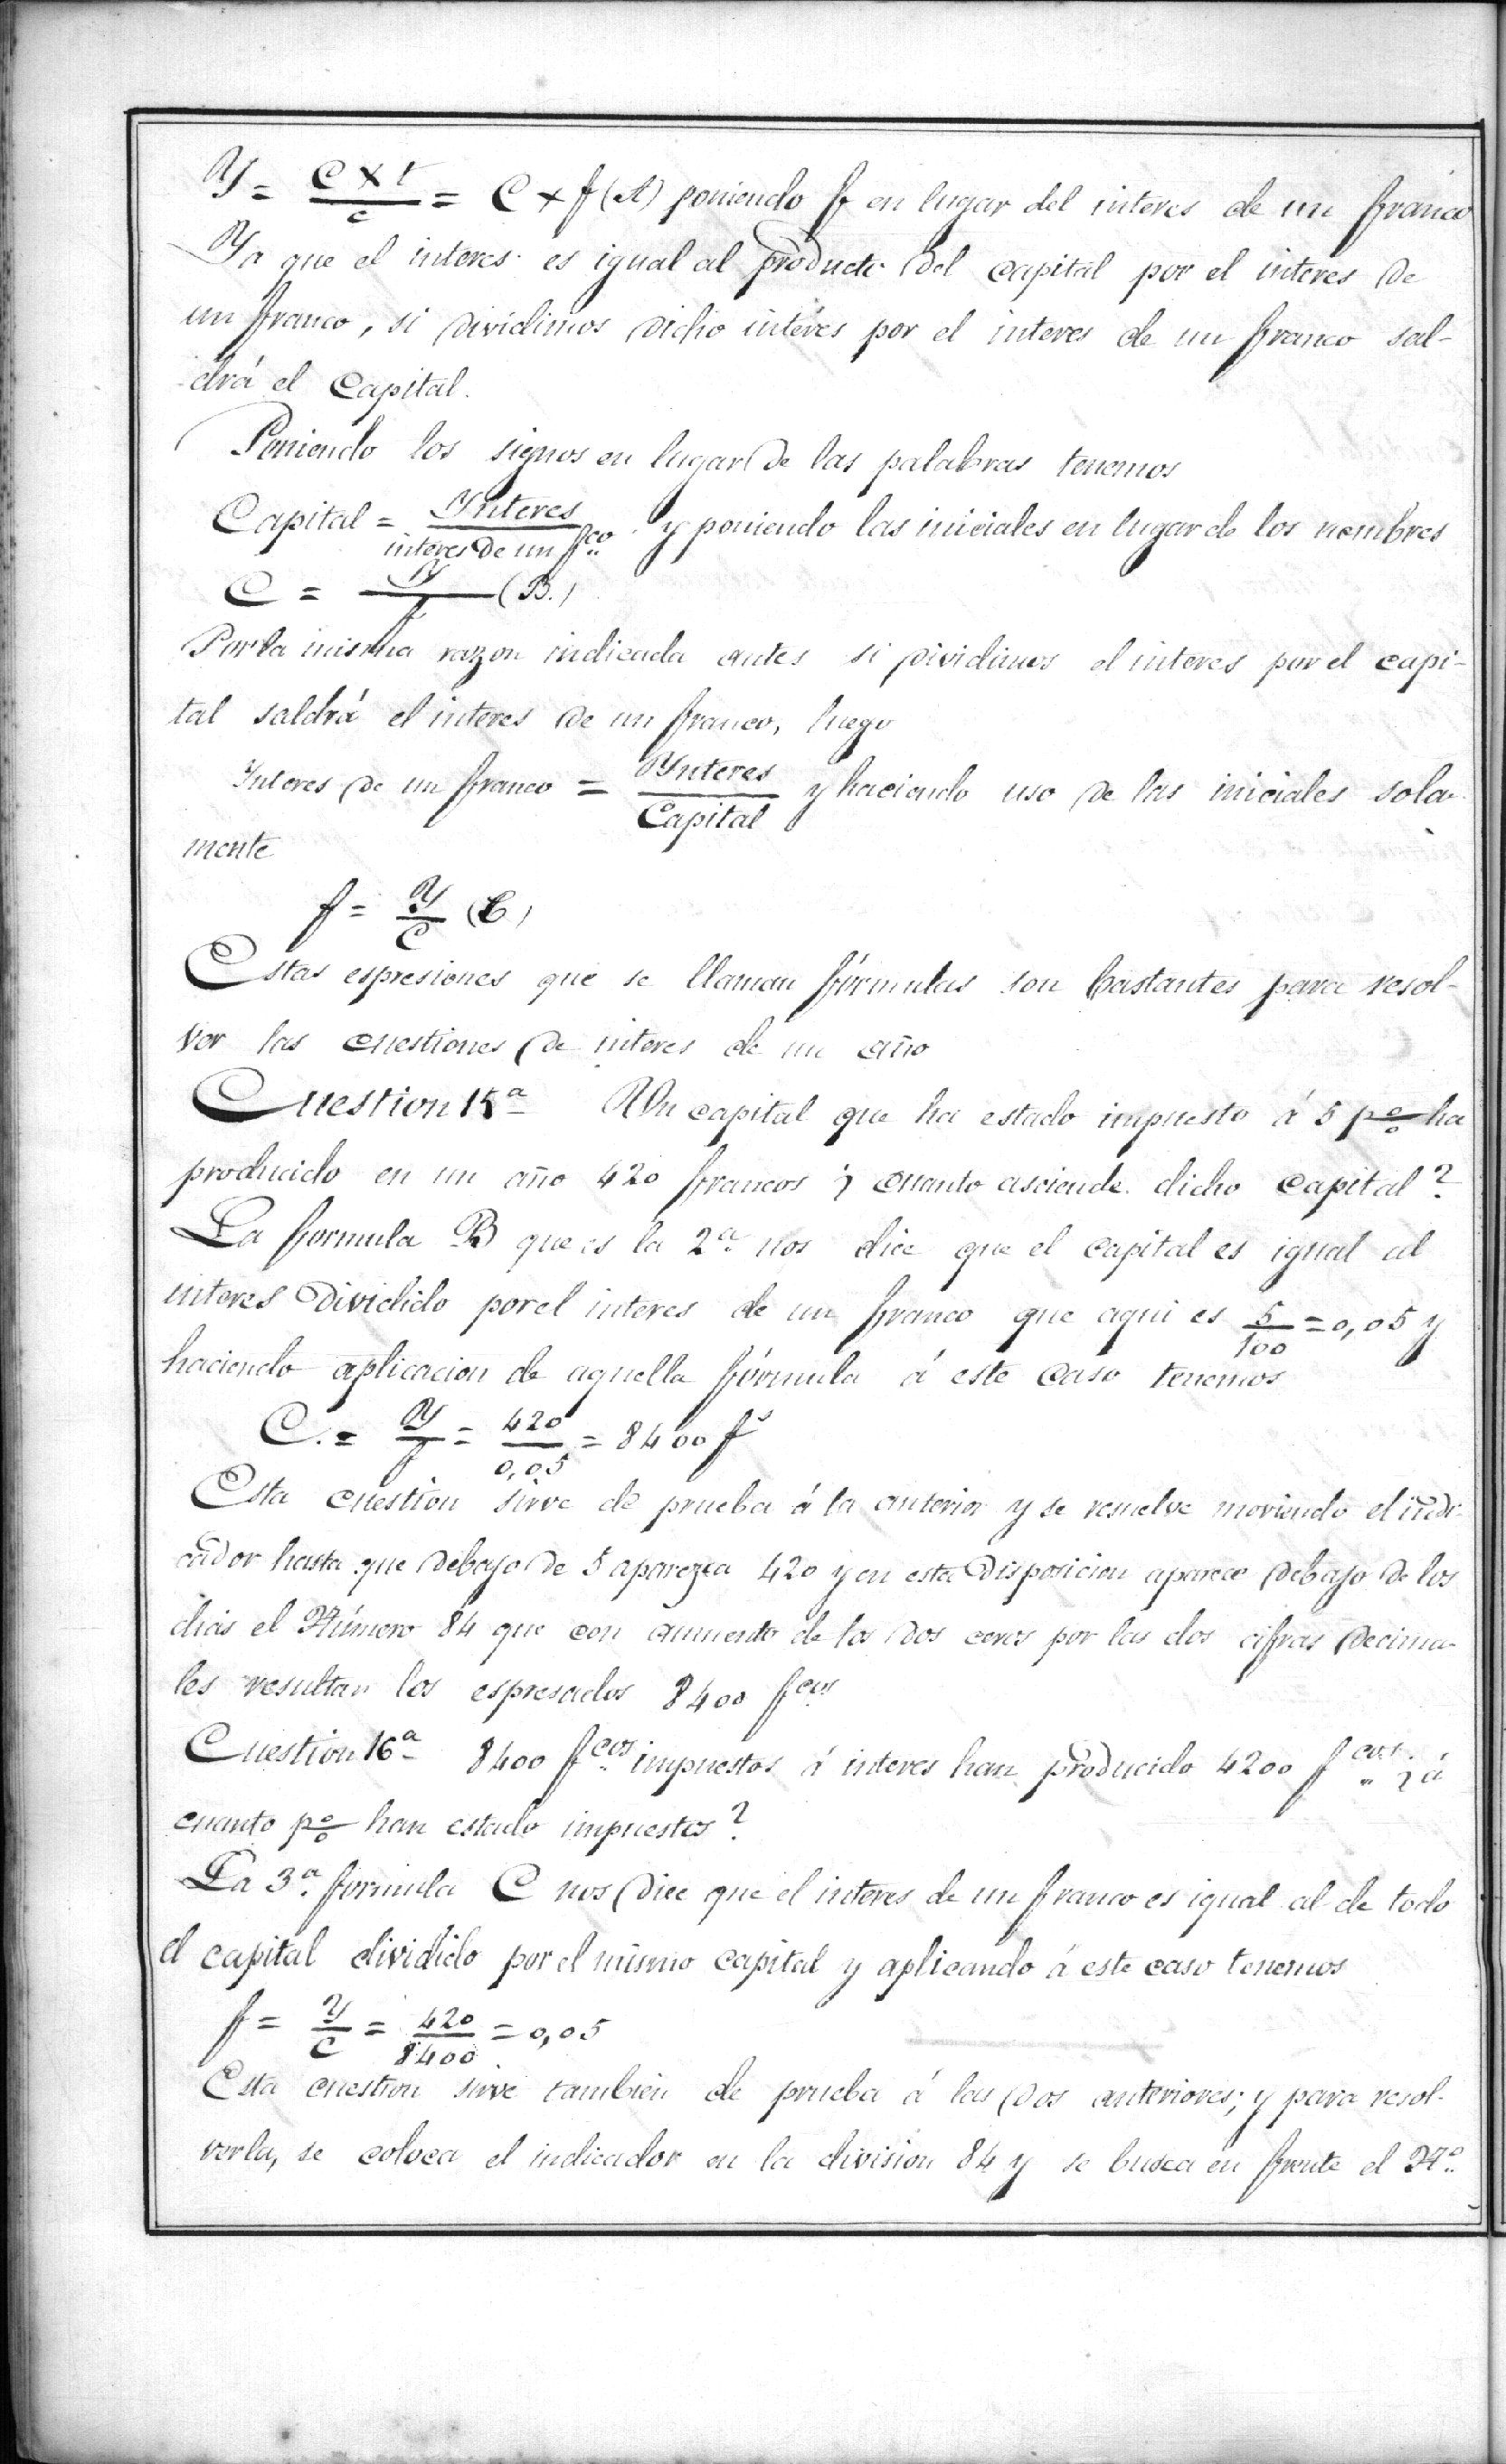 Y = C × t / c = C × f (A) poniendo f en lugar del interes de un franco
Ya que el interes es igual al producto del capital por el interes de
un franco, si dividimos dicho interés por el interes de un franco sal-
drá el capital.
Poniendo los signos en lugar de las palabras tenemos
Capital = Ynteres / interes de un fco y poniendo las iniciales en lugar de los nombres
C = Y / f (B.)
Por la misma razon indicada antes si dividimos el interes por el capi-
tal saldrá el interes de un franco, luego
Ynteres de un franco = Ynteres / Capital y haciendo uso de las iniciales sola-
mente
f = Y / C (C)
Estas espresiones que se llaman fórmulas son bastantes para resol-
ver las cuestiones de interes de un año
Cuestion 15ª Un capital que ha estado impuesto á 5 p% ha
producido en un año 420 francos ¿ cuanto asciende dicho capital?
La formula B que es la 2ª nos dice que el capital es igual al
interes dividido por el interes de un franco que aqui es 5/100 = 0,05 y
haciendo aplicacion de aquella fórmula á este caso tenemos
C. = Y / f = 420 / 0,05 = 8400 fs
Esta cuestion sirve de prueba á la anterior y se resuelve moviendo el indi-
cador hasta que debajo de 5 aparezca 420 y en esta disposicion aparece debajo de los
dias el Número 84 que con aumento de los dos ceros por las dos cifras decima-
les resultan los espresados 8400 fcos
Cuestion 16ª 8400 fcos impuestos á interes han producido 4200 fcos ¿ á
cuanto p% han estado impuestos?
La 3ª formula C nos dice que el interes de un franco es igual al de todo
el capital dividido por el mismo capital y aplicando á este caso tenemos
f = Y / C = 420 / 8400 = 0,05
Esta cuestion sirve tambien de prueba á las dos anteriores; y para resol-
verla, se coloca el indicador en la division 84 y se busca en frente el Nº